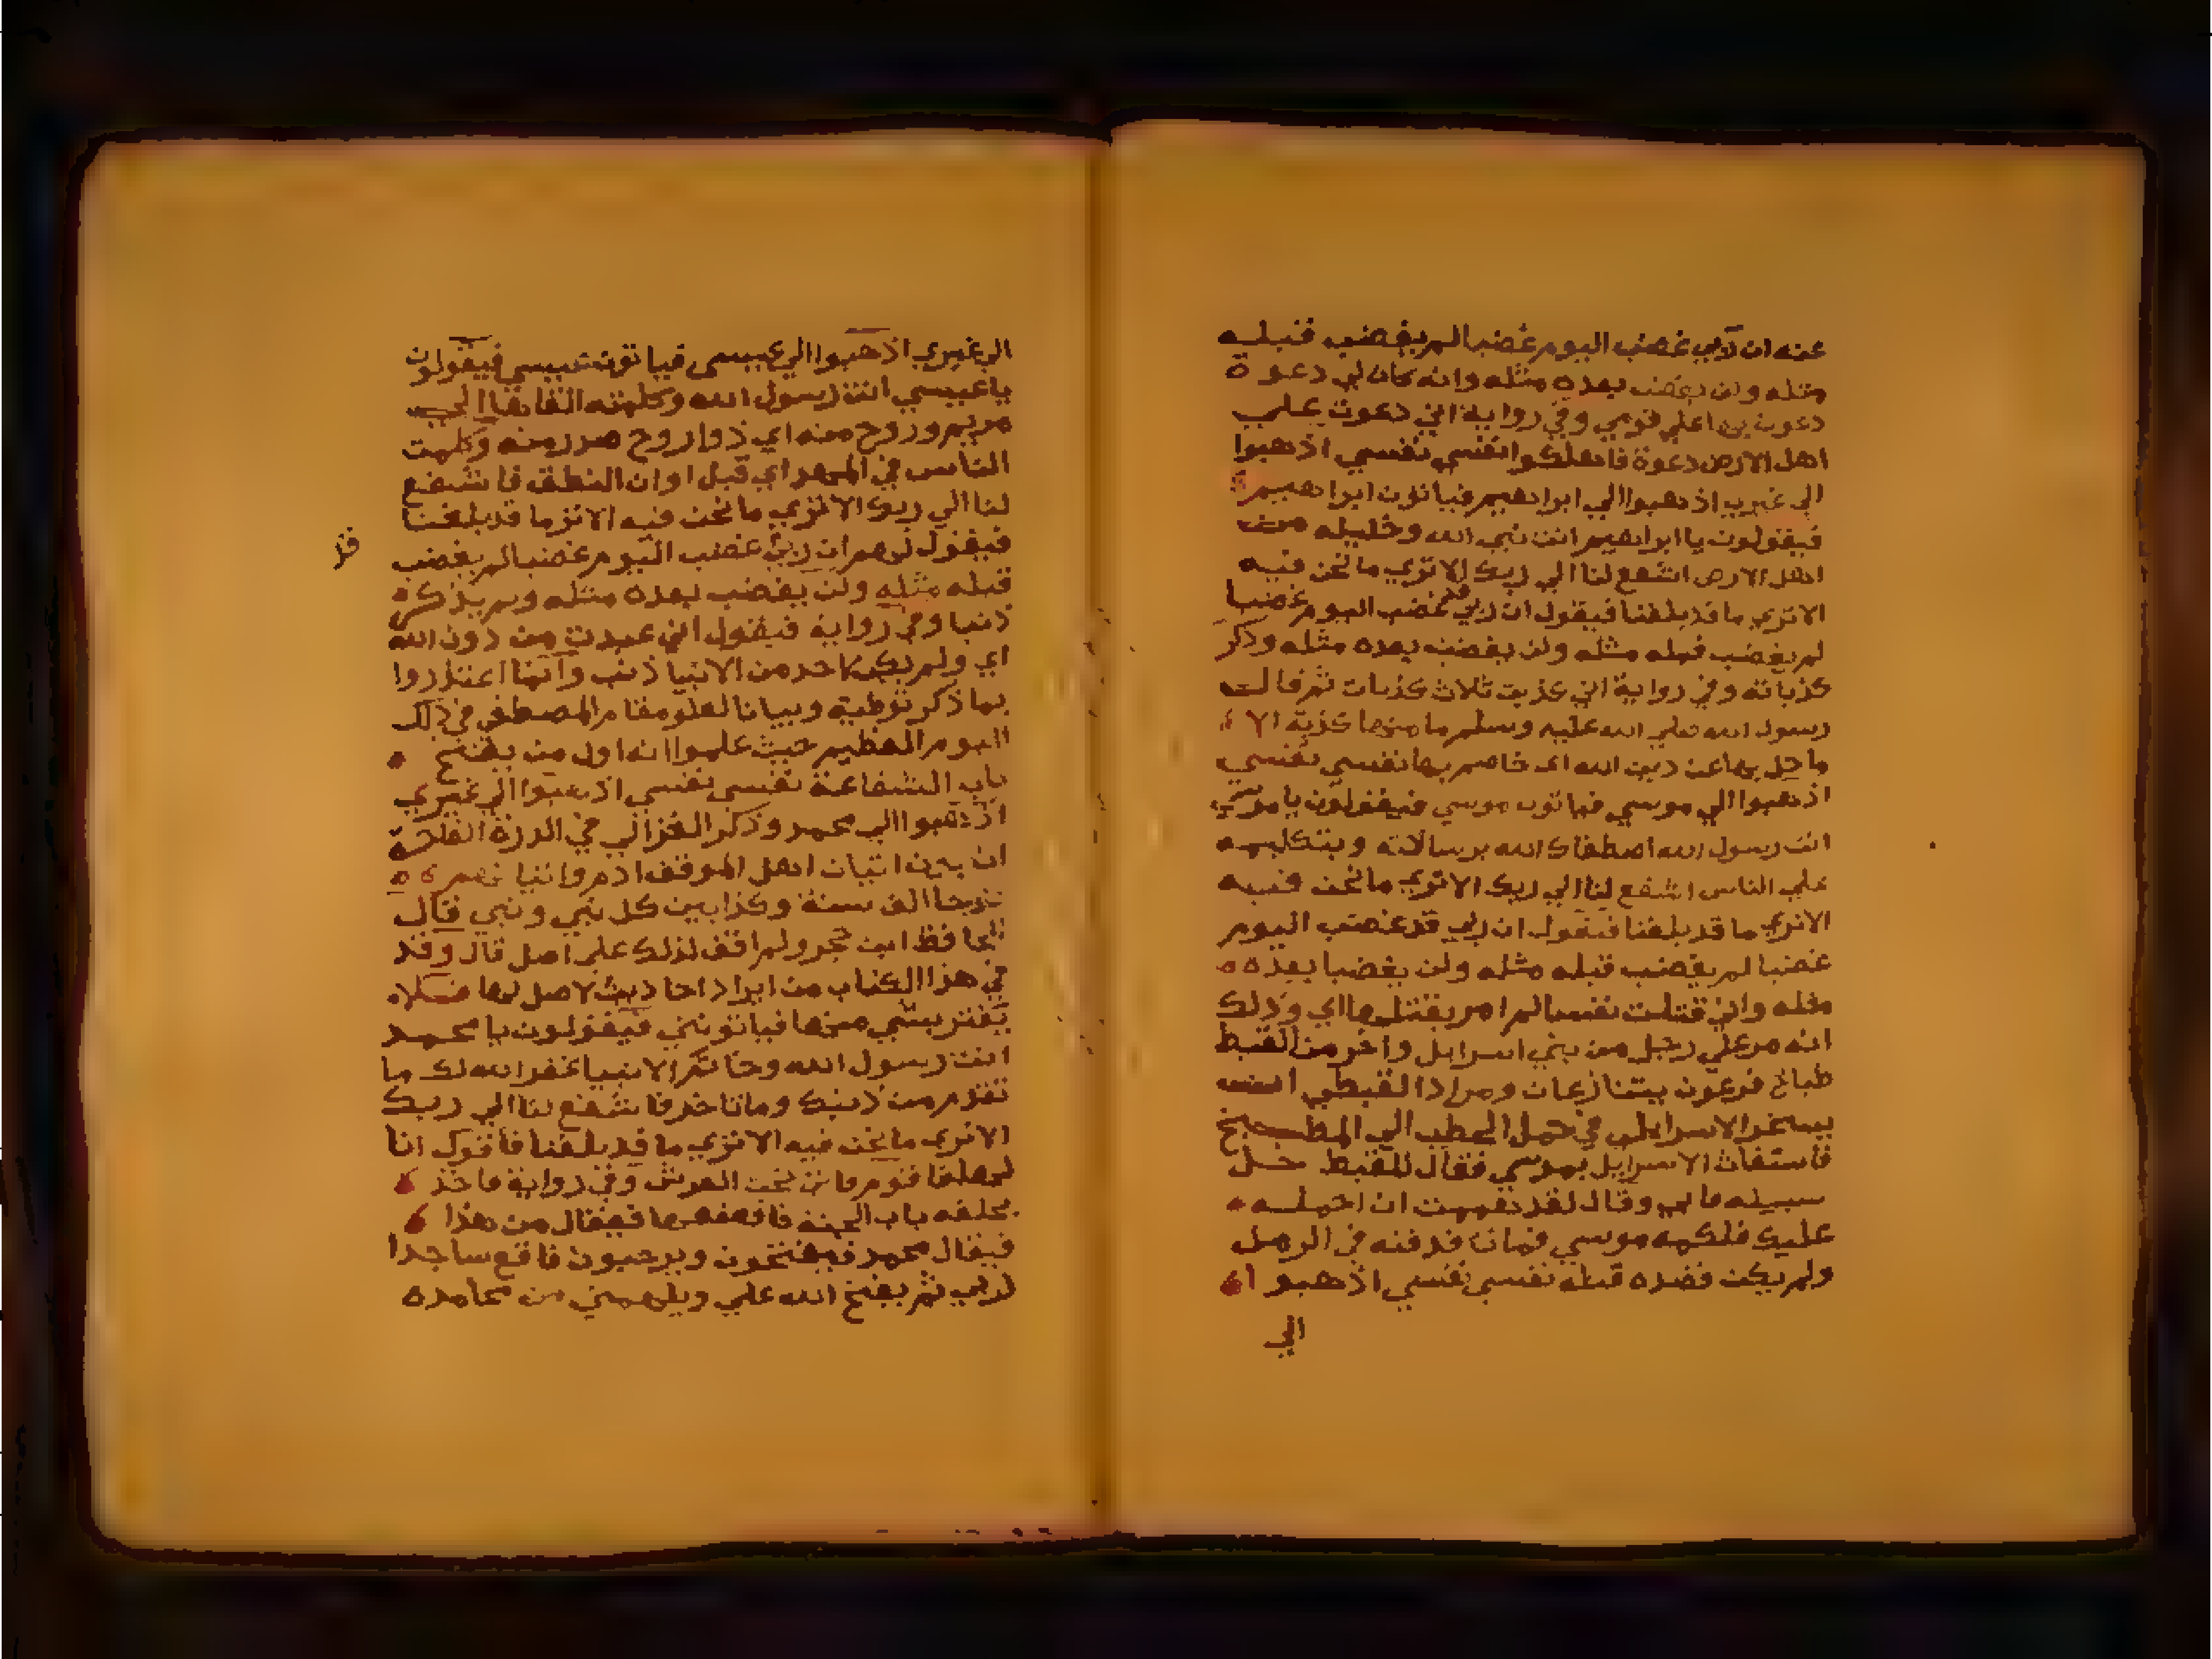 عنه ان ربي غضب اليوم غضبا لم يغضب قبله
مثله ولن يغضب بعده مثله وانه كان لي دعوة
دعوت بها علي قومي وفي رواية اني دعوت علي
اهل الارض دعوة فاهلكوا نفسي نفسي اذهبوا
الي غيري اذهبوا الي ابراهيم فياتون ابراهيم
فيقولون يا ابراهيم انت نبي الله وخليله من
اهل الارض اشفع لنا الي ربك الا تري ما نحن فيه
الا تري ما قد بلغنا فيقول ان ربي قد غضب اليوم غضبا
لم يغضب قبله مثله ولن يغضب بعده مثله وذكر
كذباته وفي رواية اني كذبت ثلاث كذبات ثم قال
رسول الله صلي الله عليه وسلم ما منها كذبة الا
ما حل بها عن دين الله اي خاصم بها نفسي نفسي
اذهبوا الي موسي فياتون موسي فيقولون يا موسي
انت رسول الله اصطفاك الله برسالاته وبتكليمه
علي الناس اشفع لنا الي ربك الا تري ما نحن فيه
الا تري ما قد بلغنا فيقول ان ربي قد غضب اليوم
غضبا لم يغضب قبله مثله ولن يغضبا بعده
مثله واني قتلت نفسا لم اومر بقتلها اي وذلك
انه مر علي رجل من بني اسرايل واخر من القبط
طباخ فرعون يتنازعان ومراد القبطي ان
يسخر الاسرايلي في حمل الحطب الي المطبخ
فاستغاث الاسرايل بموسي فقال للقبط خل
سبيله فابي وقال لقد هممت ان احمله
عليك فلكمه موسي فمات فدفنه في الرمل
ولم يكن قصده قتله نفسي نفسي اذهبوا
الي
الي غيري اذهبوا الي عيسي فياتون عيسي فيقولون
يا عيسي انت رسول الله وكلمته القاها الي
مريم وروح منه اي ذو روح صدر منه وكلمت
الناس في المهد اي قبل اوان النطق فاشفع
لنا الي ربك الا تري ما نحن فيه الا تري ما قد بلغنا
فيقول لهم ان ربي غضب اليوم غضبا لم يغضب
قد
قبله مثله ولن يغضب بعده مثله ولم يذكر
ذنبا وفي رواية فيقول اني عبدت من دون الله
اي ولم يكن لاحد من الانبيا ذنب وانما اعتذروا
بما ذكر توطية وبيانا لعلو مقام المصطفي في ذلك
اليوم العظيم حيث علموا انه اول من يفتح
باب الشفاعة نفسي نفسي اذهبوا الي غيري
اذهبوا الي محمد وذكر الغزالي في الدرة الفاخرة
ان بين اتيان اهل الموقف ادم واتيانهم
نوحا الف سنة وكذا بين كل نبي ونبي قال
الحافظ ابن حجر ولم اقف لذلك علي اصل قال وقد
في هذا الكتاب من ايراد احاديث لا صل لها فلا
يغتر بشي منها فياتوني فيقولون يا محمد
انت رسول الله وخاتم الانبيا غفر الله لك ما
تقدم من ذنبك وما تاخر فاشفع لنا الي ربك
الا تري ما نحن فيه الا تري ما قد بلغنا فاقول انا
لها فاقوم فاتي تحت العرش وفي رواية فاخذ
بحلقه باب الجنة فاقعقعها فيقال من هذا
فيقال محمد فيفتحون ويرحبون فاقع ساجدا
لربي ثم يفتح الله علي ويلهمني من محامده